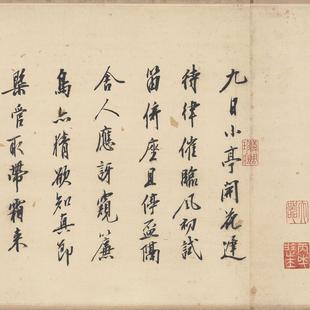 九日小亭開花遲
待律催臨風初試
笛併座且停盃隔
舍人應訝窺簾
鳥亦猜欲知真節
槩管取帶霜來